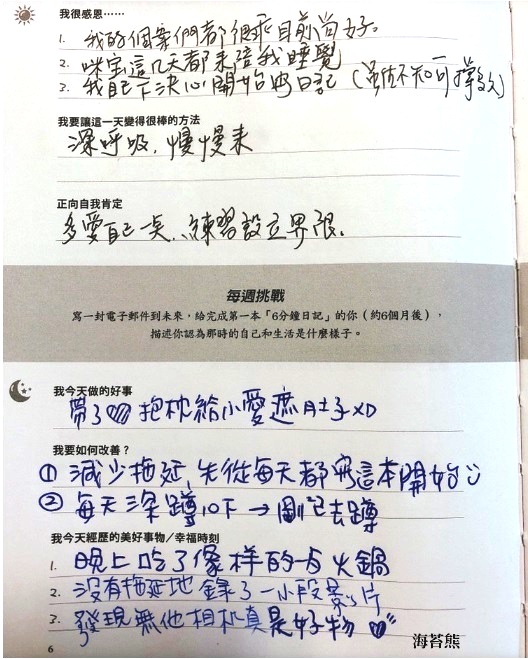 我很感恩……
1. 我的個案們都很乖目前尚好。
2. 咪宝這几天都來陪我睡覺
3. 我自己下決心開始寫日記（虽然不知可撐多久）
我要讓這一天變得很棒的方法
深呼吸，慢慢来
正向自我肯定
多愛自己一点，練習設立界限。
每週挑戰
寫一封電子郵件到未來，給完成第一本「6分鐘日記」的你（約6個月後），
描述你認為那時的自己和生活是什麼樣子。
我今天做的好事
帶了 抱枕給小愛遮肚子XD
我要如何改善？
① 減少拖延，先從每天都寫這本開始
② 每天深蹲10下 → 剛已去蹲
我今天經歷的美好事物／幸福時刻
1. 晚上吃了像样的 火鍋
2. 沒有拖延地錄了一小段影片
3. 發現無他相机真是好物
6
海苔熊